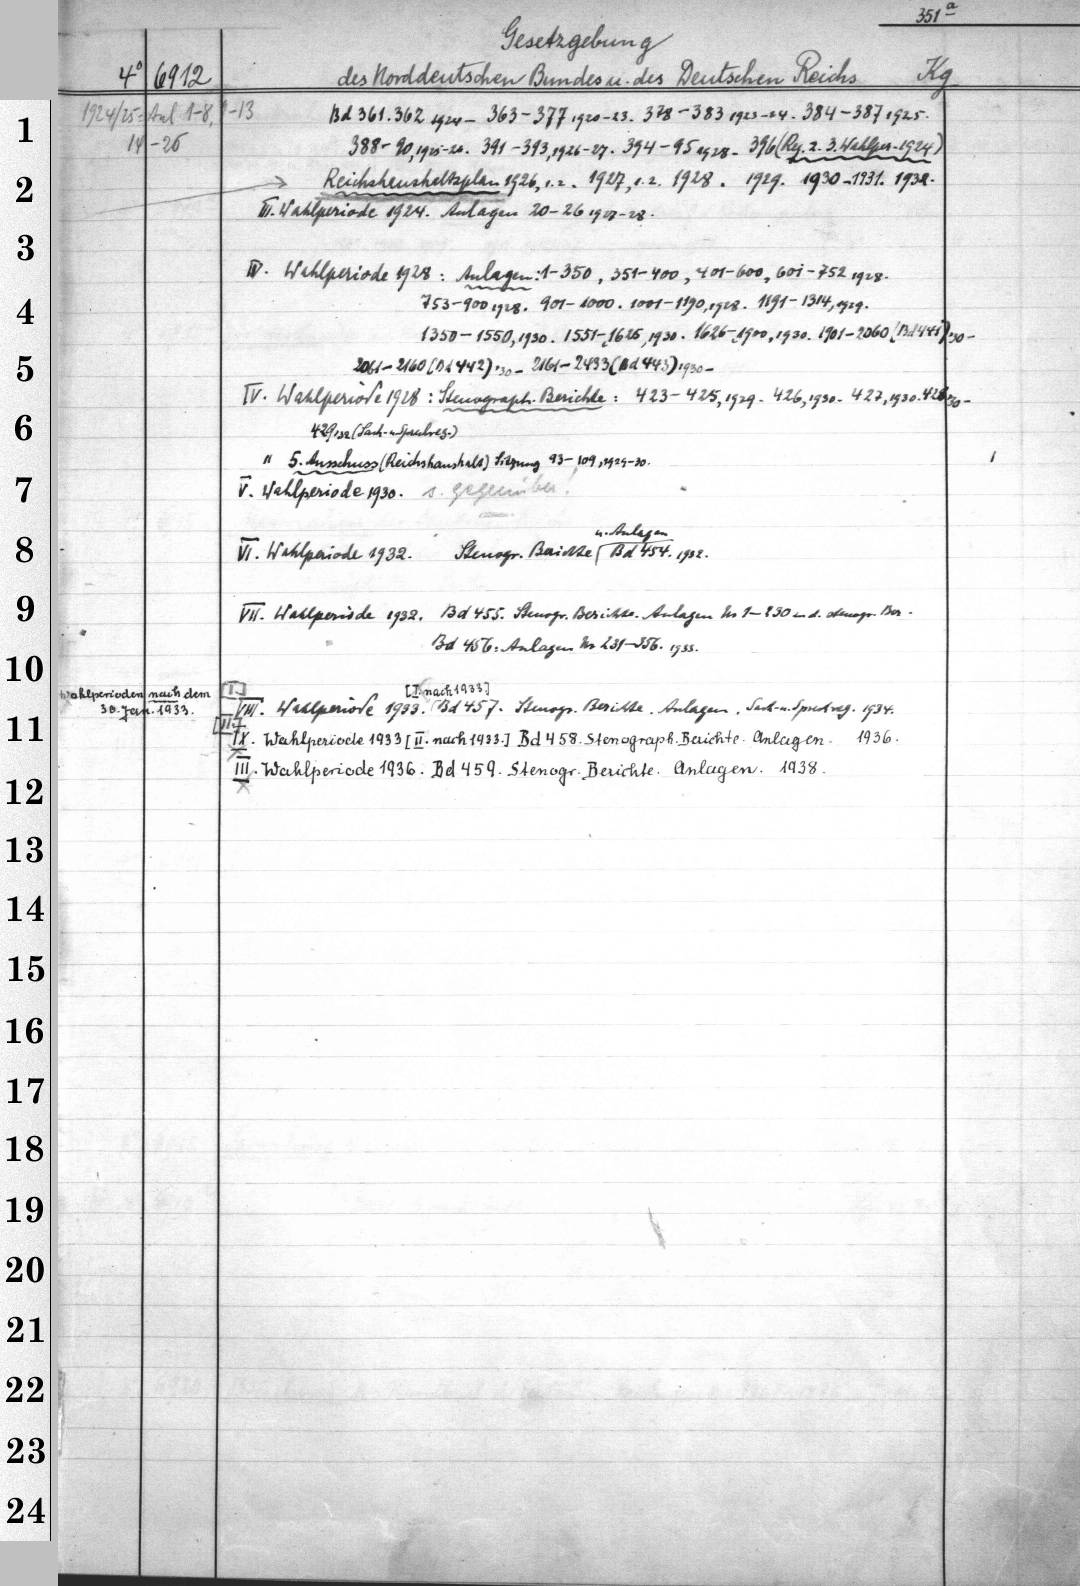 351 a
Gesetzgebung
4° 6912 des Norddeutschen Bundes u. des Deutschen Reichs Kg
1924/25: Anl 1-8, 9-13 Bd 361.362 1924 - 363-377 1920-23. 378-383 1923-24. 384-387 1925.
1
14-26 388-90, 1925-26. 391-393, 1926-27. 394-95 1928. 396 (Reg. z. 3. Wahlper. 1924)
2 Reichshaushaltsplan 1926, 1.2. 1927, 1.2. 1928. 1929. 1930-1931. 1932.
III. Wahlperiode 1924. Anlagen 20-26 1927-28.
3
IV. Wahlperiode 1928: Anlagen: 1-350, 351-400, 401-600, 601-752 1928.
4 753-900 1928. 901-1000. 1001-1190, 1928. 1191-1314, 1929.
1350-1550, 1930. 1551-1625, 1930. 1626-1900, 1930. 1901-2060 (Bd 441) '30-
5 2061-2160 (Bd 442) '30- 2161-2433 (Bd 443) 1930-
IV. Wahlperiode 1928: Stenograph. Berichte: 423-425, 1929. 426, 1930. 427, 1930. 428 '30-
6 429, '32 (Sach- u. Sprechreg.)
" 5. Ausschuss (Reichshaushalt) Sitzung 93-109, 1929-30.
7 V. Wahlperiode 1930. s. gegenüber!
u. Anlagen
8 VI. Wahlperiode 1932. Stenogr. Berichte Bd 454. 1932.
9 VII. Wahlperiode 1932. Bd 455. Stenogr. Berichte. Anlagen Nr 1-230 zu d. stenogr. Ber.
Bd 456: Anlagen Nr 231-356. 1933.
10
Wahlperioden nach dem [I.] [I. nach 1933]
30. Jan. 1933. VIII. Wahlperiode 1933. Bd 457. Stenogr. Berichte. Anlagen. Sach- u. Sprechreg. 1934.
[II.]
11 IX. Wahlperiode 1933 [II. nach 1933.] Bd 458. Stenograph. Berichte. Anlagen. 1936.
III. Wahlperiode 1936. Bd 459. Stenogr. Berichte. Anlagen. 1938.
12
13
14
15
16
17
18
19
20
21
22
23
24